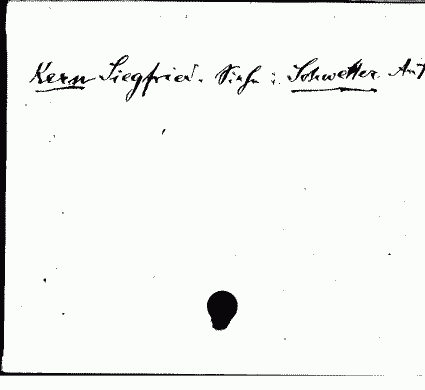 Kern Siegfried. Siehe: Schwetter Ant